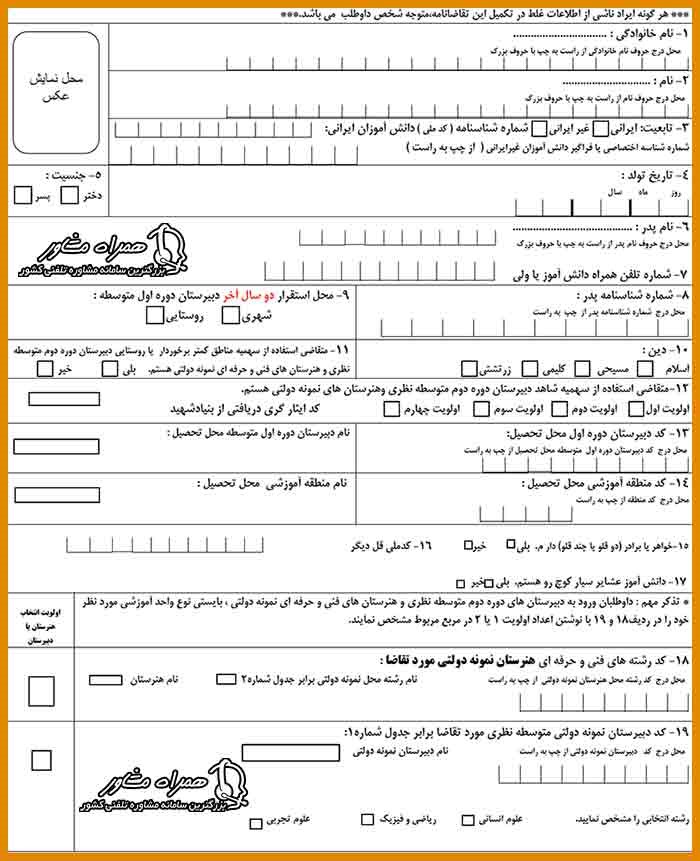 *** هر گونه ایراد ناشی از اطلاعات غلط در تکمیل این تقاضانامه،متوجه شخص داوطلب می باشد.***
محل نمایش
عکس
۱- نام خانوادگی : ................................
محل درج حروف نام خانوادگی از راست به چپ با حروف بزرگ
۲- نام : ................................
محل درج حروف نام از راست به چپ با حروف بزرگ
۳- تابعیت: ایرانی غیر ایرانی شماره شناسنامه ( کد ملی ) دانش آموزان ایرانی:
شماره شناسه اختصاصی یا فراگیر دانش آموزان غیرایرانی ( از چپ به راست )
۴- تاریخ تولد :
روز ماه سال
۵- جنسیت :
دختر پسر
۶- نام پدر : ................................
محل درج حروف نام پدر از راست به چپ با حروف بزرگ
همراه مشاور
بزرگترین سامانه مشاوره تلفنی کشور
۷- شماره تلفن همراه دانش آموز یا ولی
۸- شماره شناسنامه پدر :
محل درج شماره شناسنامه پدر از چپ به راست
۹- محل استقرار دو سال آخر دبیرستان دوره اول متوسطه :
شهری روستایی
۱۰- دین :
اسلام مسیحی کلیمی زرتشتی
۱۱- متقاضی استفاده از سهمیه مناطق کمتر برخوردار یا روستایی دبیرستان دوره دوم متوسطه
نظری و هنرستان های فنی و حرفه ای نمونه دولتی هستم. بلی خیر
۱۲-متقاضی استفاده از سهمیه شاهد دبیرستان دوره دوم متوسطه نظری وهنرستان های نمونه دولتی هستم.
اولویت اول اولویت دوم اولویت سوم اولویت چهارم کد ایثار گری دریافتی از بنیادشهید
۱۳- کد دبیرستان دوره اول محل تحصیل:
محل درج کد دبیرستان دوره اول متوسطه محل تحصیل از چپ به راست
نام دبیرستان دوره اول متوسطه محل تحصیل :
۱۴- کد منطقه آموزشی محل تحصیل :
محل درج کد منطقه از چپ به راست
نام منطقه آموزشی محل تحصیل :
۱۵-خواهر یا برادر (دو قلو یا چند قلو) دار م. بلی خیر ۱۶- کدملی قل دیگر
۱۷- دانش آموز عشایر سیار کوچ رو هستم. بلی خیر
* تذکر مهم : داوطلبان ورود به دبیرستان های دوره دوم متوسطه نظری و هنرستان های فنی و حرفه ای نمونه دولتی ، بایستی نوع واحد آموزشی مورد نظر
خود را در ردیف۱۸ و ۱۹ با نوشتن اعداد اولویت ۱ یا ۲ در مربع مربوط مشخص نمایند.
اولویت انتخاب
هنرستان یا
دبیرستان
۱۸- کد رشته های فنی و حرفه ای هنرستان نمونه دولتی مورد تقاضا :
محل درج کد رشته محل هنرستان نمونه دولتی از چپ به راست نام رشته محل نمونه دولتی برابر جدول شماره۲ نام هنرستان
۱۹- کد دبیرستان نمونه دولتی متوسطه نظری مورد تقاضا برابر جدول شماره۱:
محل درج کد دبیرستان نمونه دولتی از چپ به راست نام دبیرستان نمونه دولتی
همراه مشاور
بزرگترین سامانه مشاوره تلفنی کشور
رشته انتخابی را مشخص نمایید. علوم انسانی ریاضی و فیزیک علوم تجربی